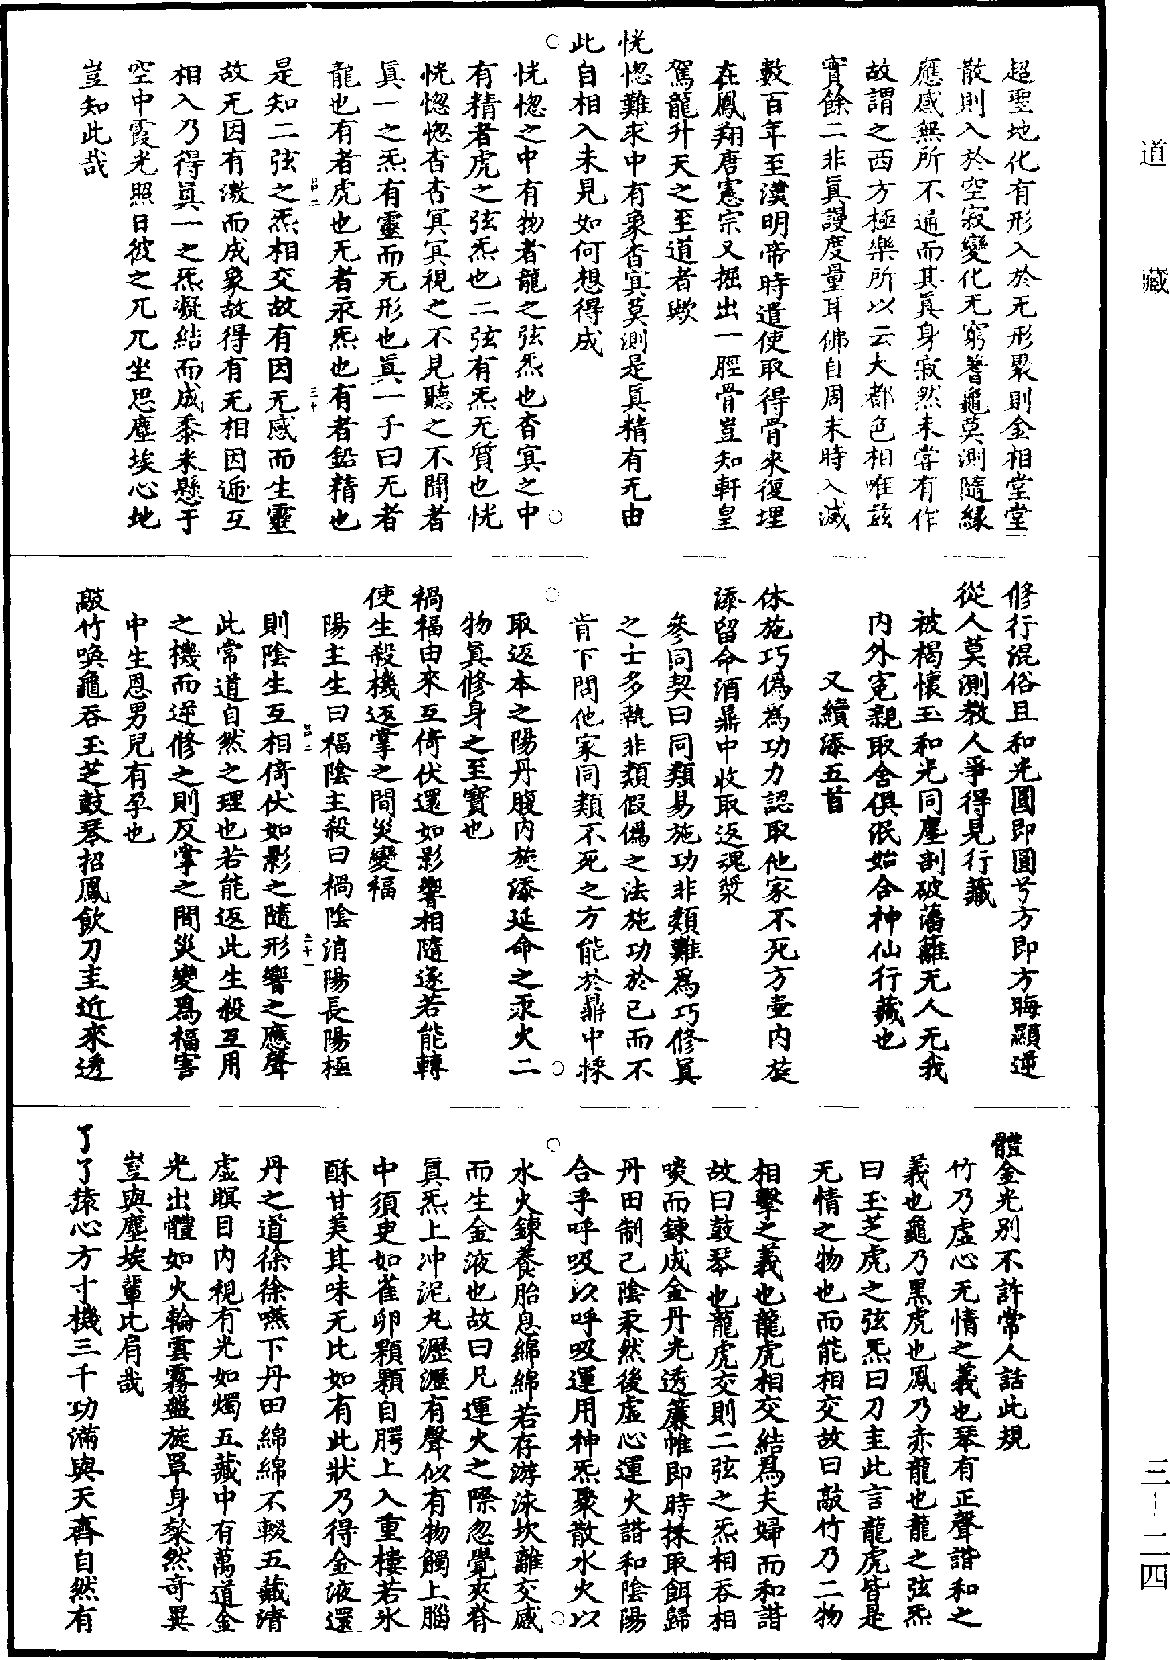 道藏
超聖地化有形入於无形聚則金相堂堂
散則入於空寂變化无窮蓍龜莫測隨緣
應感無所不遍而其真身寂然未嘗有作
故謂之西方極樂所以云大都色相唯兹
實餘二非真謾度量耳佛自周末時入滅
數百年至漢明帝時遣使取得骨來復埋
在鳳翔唐憲宗又掘出一脛骨豈知軒皇
駕龍升天之至道者歟
恍惚難求中有象杳冥莫測是真精有无由
此自相入未見如何想得成
恍惚之中有物者龍之弦炁也杳冥之中
有精者虎之弦炁也二弦有炁无質也恍
恍惚惚杳杳冥冥視之不見聽之不聞者
真一之炁有靈而无形也真一子曰无者
龍也有者虎也无者汞炁也有者鉛精也
是知二弦之炁相交故有因无感而生靈
故无因有激而成象故得有无相因遞互
相入乃得真一之炁凝結而成黍米懸于
空中霞光照日彼之兀兀坐思塵埃心地
豈知此哉
修行混俗且和光圓即圓兮方即方晦顯逆
從人莫測教人爭得見行藏
被褐懷玉和光同塵剖破藩籬无人无我
内外寃親取舍俱泯始合神仙行藏也
又續添五首
休施巧僞為功力認取他家不死方壺内旋
添留命酒鼎中收取返魂漿
參同契曰同類易施功非類難為巧修真
之士多執非類假僞之法施功於已而不
肯下問他家同類不死之方能於鼎中採
取返本之陽丹腹内旋添延命之汞火二
物真修身之至寶也
禍福由來互倚伏還如影響相隨逐若能轉
使生殺機返掌之間災變福
陽主生曰福陰主殺曰禍陰消陽長陽極
則陰生互相倚伏如影之隨形響之應聲
此常道自然之理也若能返此生殺互用
之機而逆修之則反掌之間災變爲福害
中生恩男兒有孕也
敲竹喚龜吞玉芝鼓琴招鳳飲刀圭近來透
體金光別不許常人話此規
竹乃虛心无情之義也琴有正聲諧和之
義也龜乃黑虎也鳳乃赤龍也龍之弦炁
曰玉芝虎之弦炁曰刀圭此言龍虎皆是
无情之物也而能相交故曰敲竹乃二物
相擊之義也龍虎相交結爲夫婦而和諧
故曰鼓琴也龍虎交則二弦之炁相吞相
啖而鍊成金丹光透簾帷即時採取餌歸
丹田制己陰汞然後虛心運火諧和陰陽
合乎呼吸以呼吸運用神炁聚散水火以
水火鍊養胎息綿綿若存游泳坎離交感
而生金液也故曰凡運火之際忽覺夾脊
真炁上冲泥丸瀝瀝有聲似有物觸上腦
中須臾如雀卵顆顆自腭上入重樓若氷
酥甘美其味无比如有此狀乃得金液還
丹之道徐徐嚥下丹田綿綿不輟五藏清
虛瞑目内視有光如燭五藏中有萬道金
光出體如火輪雲霧盤旋罩身粲然奇異
豈與塵埃輩比肩哉
了了猿心方寸機三千功滿與天齊自然有
三-二四